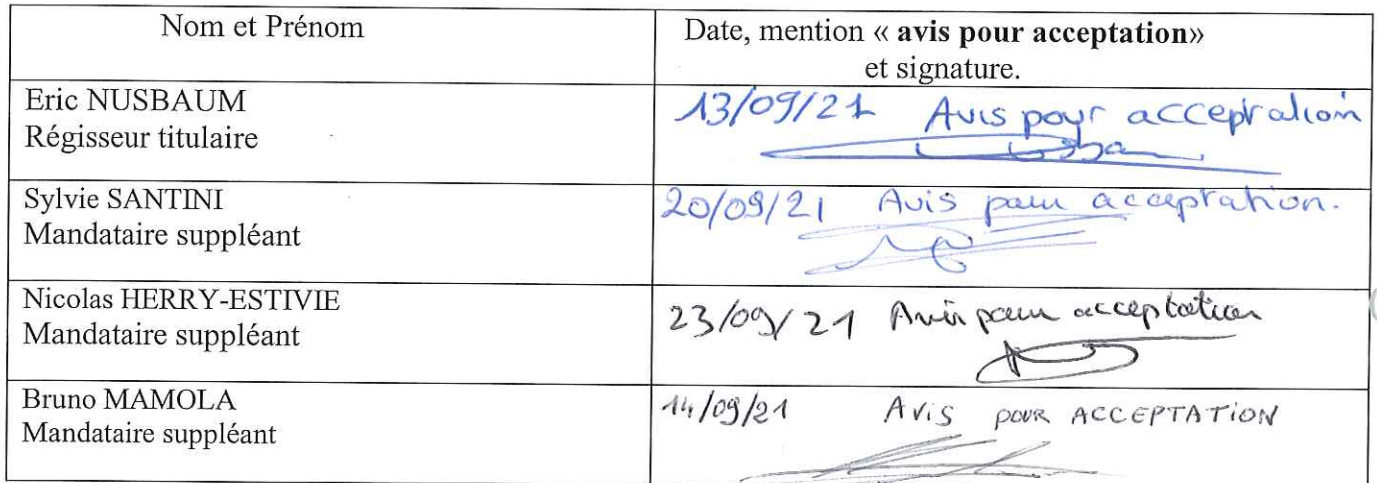 Nom et Prénom
Date, mention « avis pour acceptation»
et signature.
Eric NUSBAUM
Régisseur titulaire
13/09/21 Avis pour acceptation
Sylvie SANTINI
Mandataire suppléant
20/09/21 Avis pour acceptation.
Nicolas HERRY-ESTIVIE
Mandataire suppléant
23/09/21 Avis pour acceptation
Bruno MAMOLA
Mandataire suppléant
14/09/21 AVIS POUR ACCEPTATION